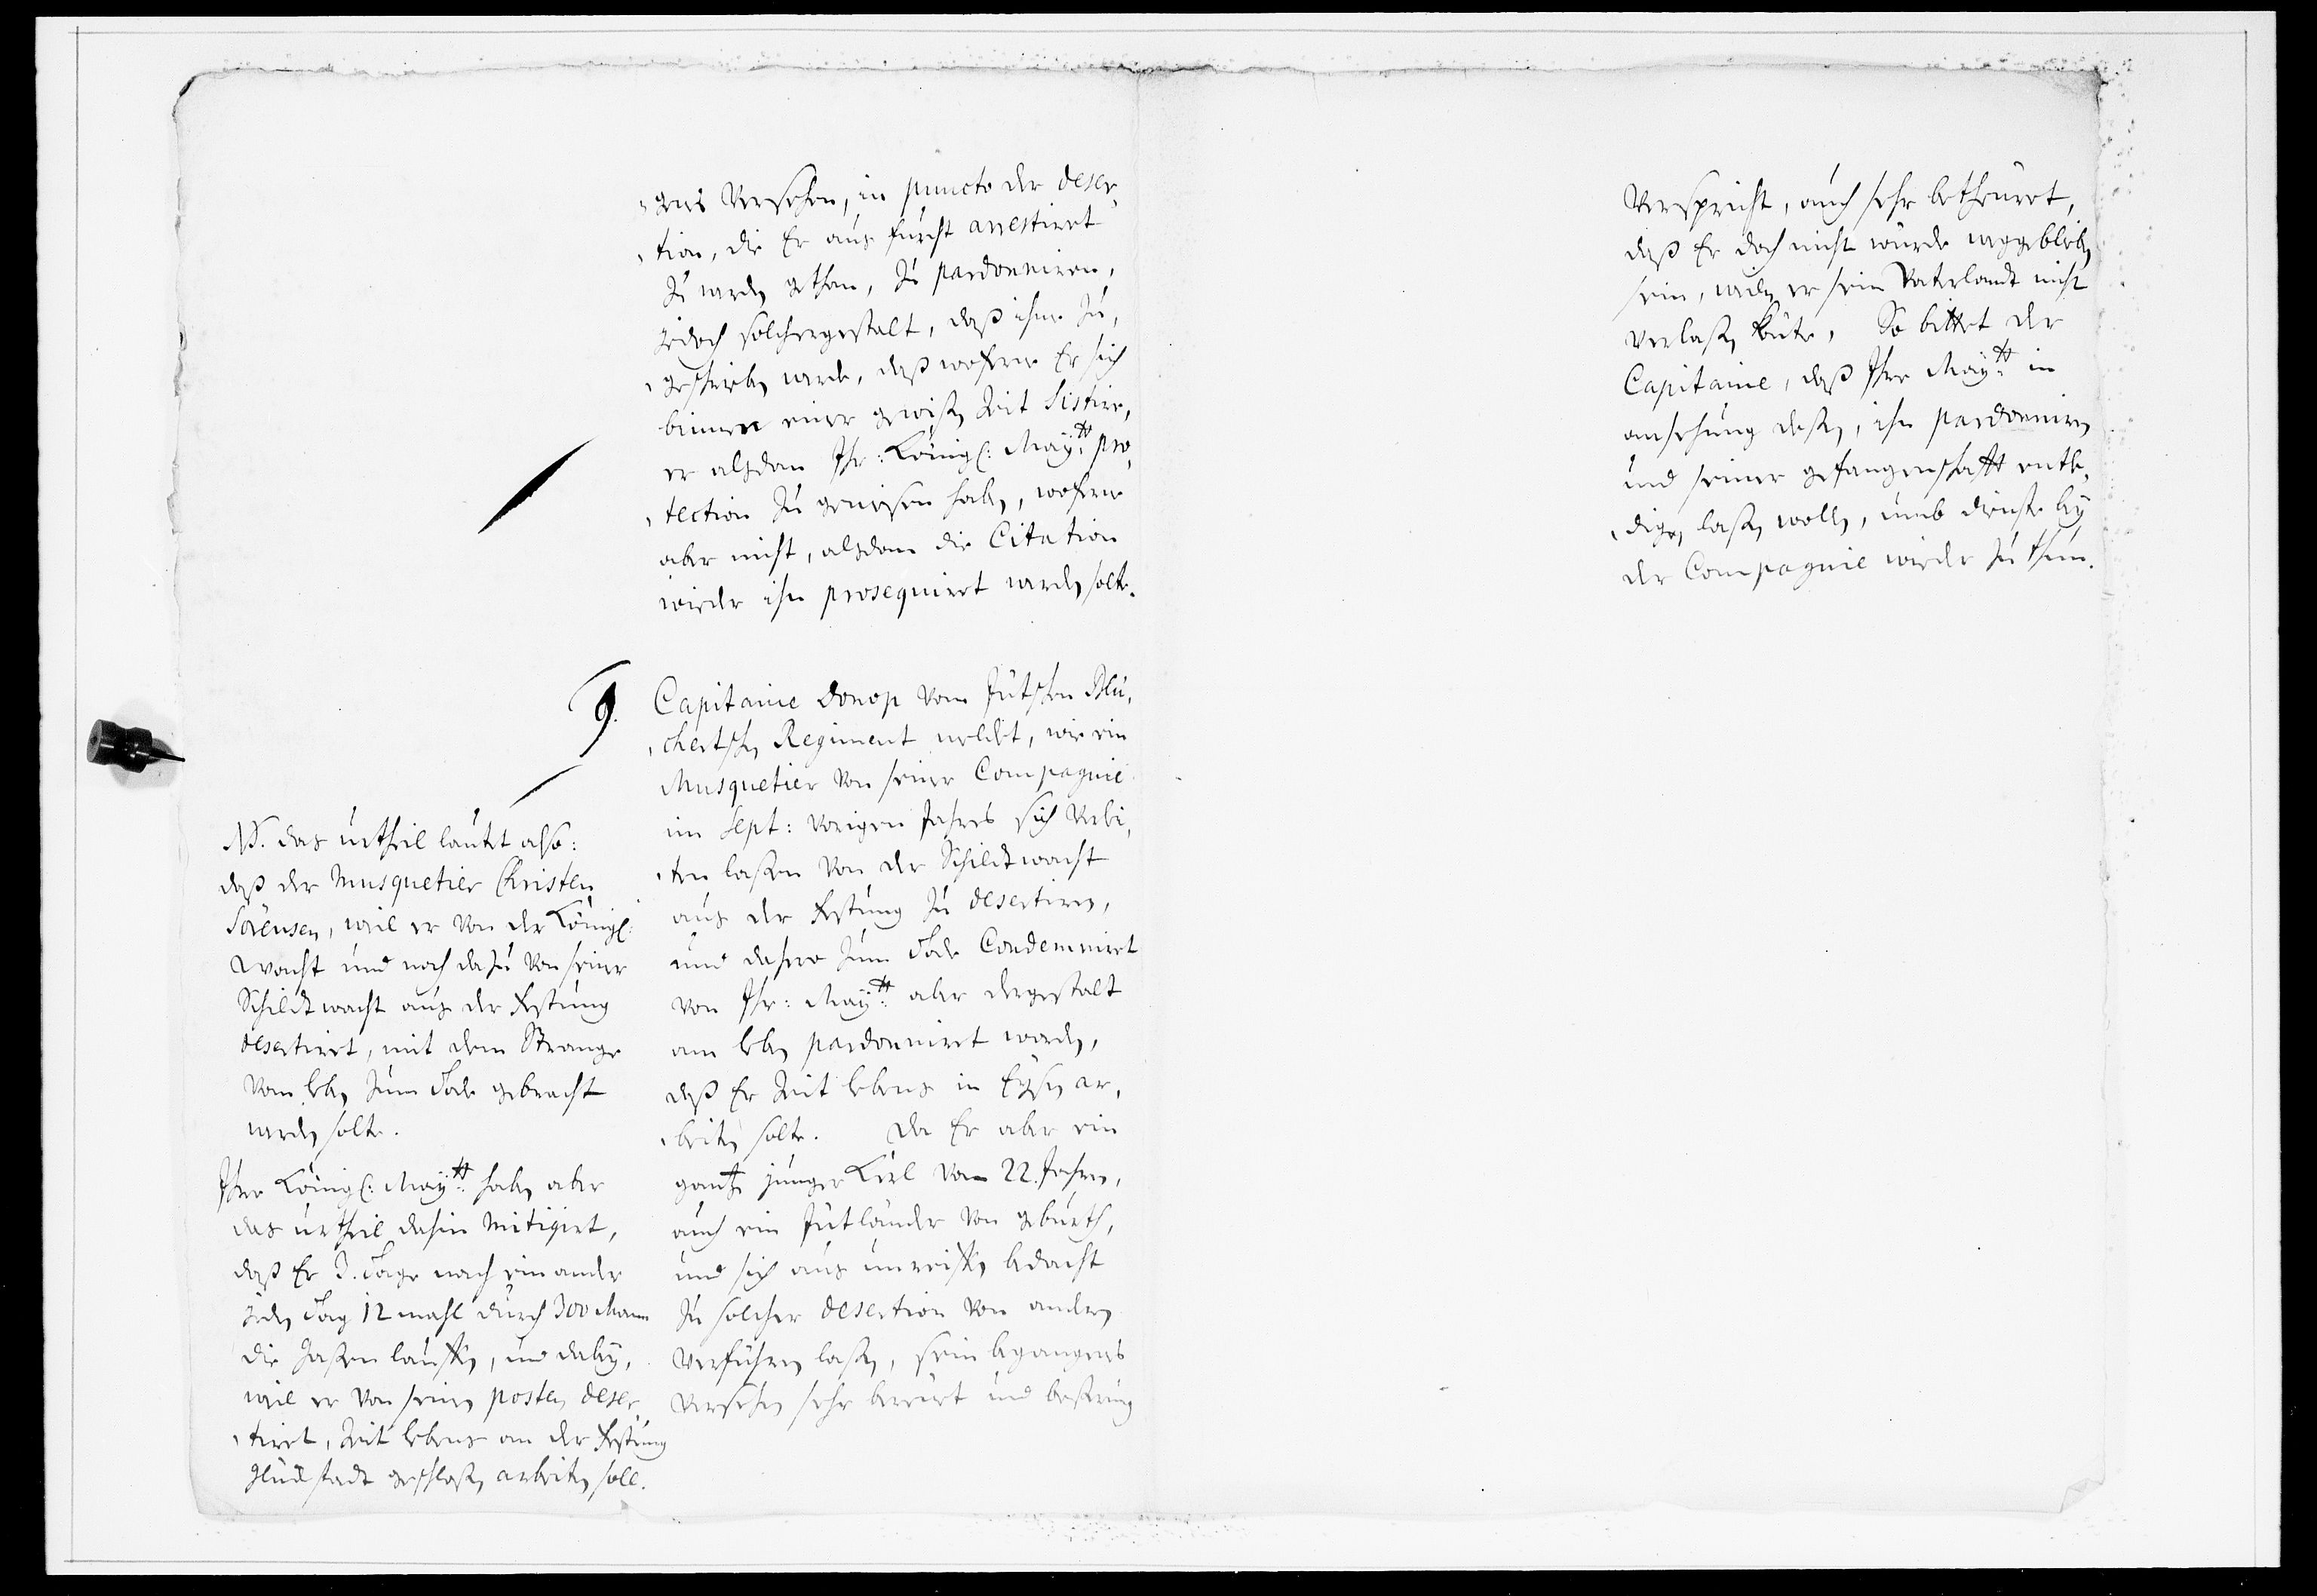 genes Versehen, in puncto der deser,
tion, die Er aus furcht arrestiret
zu werden gethan, zu pardonniren,
jedoch solchergestalt, daß ihme zu,
geschrieben werde, daß wofern Er sich
binnen einer gewißen Zeit sistire,
er alsdan Ihr: Königl: Mayᵗᵗ: pro,
tection zu geniesen haben, wofern
aber nicht, alsdann die Citation
wieder ihn prosequiret werden solte.
9. Capitaine Donop vom Jütschen Blü,
chertschen Regiment meldet, wie ein
Musquetier von seiner Compagnie
im Sept: vorigen Jahres sich verlei,
ten laßen von der Schildtwacht
aus der Festung zu desertiren,
und dahero zum Tode Condemniret
von Ihr: Mayᵗᵗ: aber dergestalt
am leben pardonniret worden,
daß Er Zeit lebens in Eysen ar,
beiten solte. Da Er aber ein
gantz junger Kerl von 22. Jahren,
auch ein Jütländer von geburth,
und sich aus unreiffen bedacht
zu solcher desertion von andern
verführen laßen, sein begangenes
versehen sehr bereuet und beßerung
NB. das urtheil lautet also:
daß der Musquetier Christen
Sörensen, weil er von der Königl:
Wacht und noch dazu von seiner
Schildtwacht aus der Festung
desertiret, mit dem Strange
vom leben zum Tode gebracht
werden solte.
Ihre Königl: Mayᵗᵗ: haben aber
das urtheil dahin mitigiret,
daß Er 3. Tage nach einander
jeden Tag 12 mahl durch 300 Mann
die Gaßen lauffen, und dabey,
weil er von seinen posten deser,
tiret, Zeit lebens an der Festung
Glückstadt geschloßen arbeiten soll.
verspricht, auch sehr betheuret,
daß Er doch nicht würde weggeblieben
sein, weilen er sein Vaterlandt nicht
verlaßen könte, So bittet der
Capitaine, daß Ihre Mayᵗᵗ: in
ansehung deßen, ihn pardonniren
und seiner gefangenschafft entle,
digen laßen wollen, umb dienste bey
der Compagnie wieder zu thun.